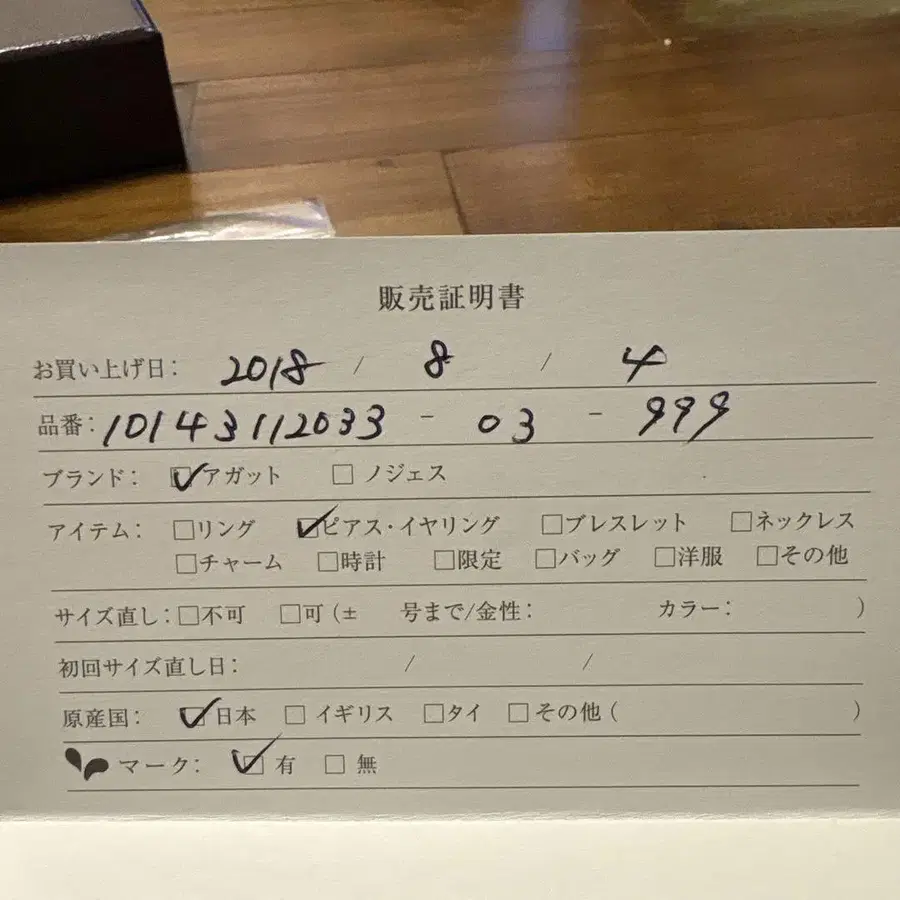 販売証明書
お買い上げ日: 2018 / 8 / 4
品番: 10143112033 - 03 - 999
ブランド: ☑アガット □ノジェス
アイテム: □リング ☑ピアス・イヤリング □ブレスレット □ネックレス
□チャーム □時計 □限定 □バッグ □洋服 □その他
サイズ直し: □不可 □可 (± 号まで/金性: カラー: )
初回サイズ直し日: / /
原産国: ☑日本 □イギリス □タイ □その他 ( )
マーク: ☑有 □無